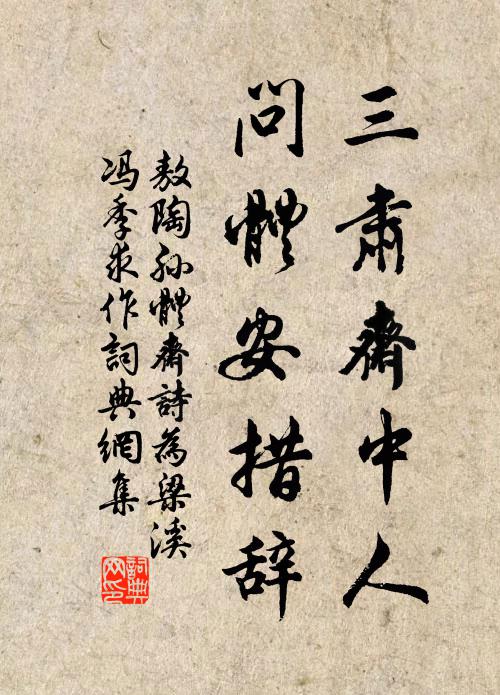 三肅齋中人
問體安措辞
敖陶孙體齋詩為梁溪
冯季求作詞典網集
詞典网印